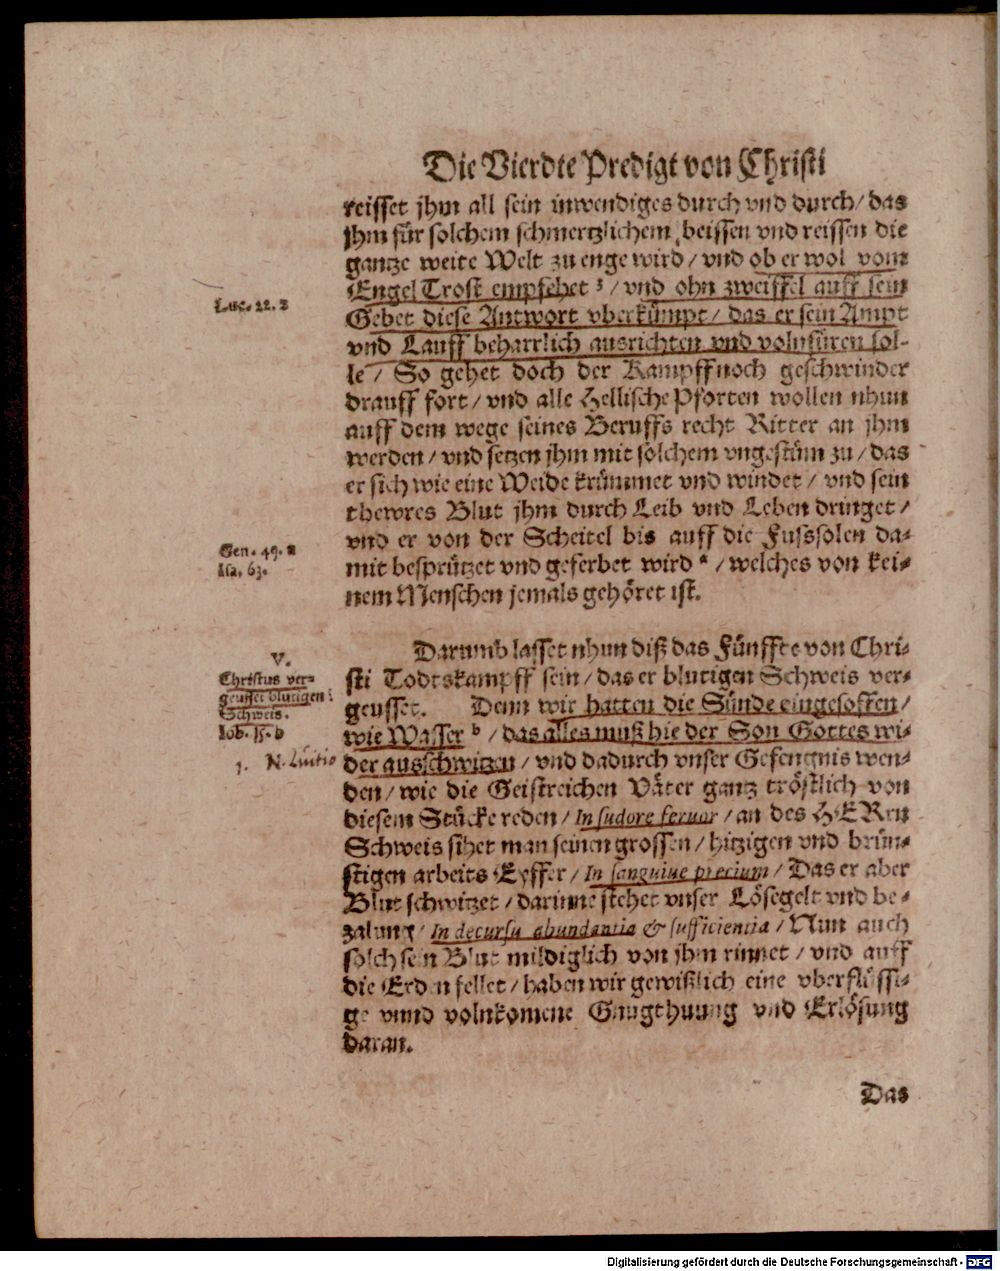 Die Vierdte Predigt von Christi
reisset jhm all sein inwendiges durch vnd durch/ das
jhm für solchem schmertzlichem beissen vnd reissen die
gantze weite Welt zu enge wird/ vnd ob er wol vom
Engel Trost empfehet z/ vnd ohn zweiffel auff sein
Luc. 22. z
Gebet diese Antwort vberkümpt/ das er sein Ampt
vnd Lauff beharrlich ausrichten vnd volnfüren sol-
le/ So gehet doch der Kampff noch geschwinder
drauff fort/ vnd alle Hellische Pforten wollen nhun
auff dem wege seines Beruffs recht Ritter an jhm
werden/ vnd setzen jhm mit solchem vngestüm zu/ das
er sich wie eine Weide krümmet vnd windet/ vnd sein
thewres Blut jhm durch Leib vnd Leben dringet/
vnd er von der Scheitel bis auff die Fusssolen da-
Gen. 49. a
mit besprützet vnd geferbet wird a/ welches von kei-
Isa. 63.
nem Menschen jemals gehöret ist.
Darumb lasset nhun diß das Fünffte von Chri-
V.
sti Todtskampff sein/ das er blutigen Schweis ver-
Christus ver-
geusset blutigen
Schweis.
Iob. 15. b
geusset. Denn wir hatten die Sünde eingesoffen/
wie Wasser b/ das alles muß hie der Son Gottes wi-
der ausschwitzen/ vnd dadurch vnser Gefengnis wen-
1. N.
den/ wie die Geistreichen Väter gantz tröstlich von
diesem Stücke reden/ In sudore feruor/ an des HERrn
Schweis sihet man seinen grossen/ hitzigen vnd brün-
stigen arbeits Eyffer/ In sanguine precium/ Das er aber
Blut schwitzet/ darinne stehet vnser Lösegelt vnd be-
zalung/ In decursu abundantia & sufficientia/ Nun auch
solch sein Blut mildiglich von jhm rinnet/ vnd auff
die Erden fellet/ haben wir gewißlich eine vberflüssi-
ge vnnd volnkomene Gnugthuung vnd Erlösung
daran.
Das
Digitalisierung gefördert durch die Deutsche Forschungsgemeinschaft - DFG